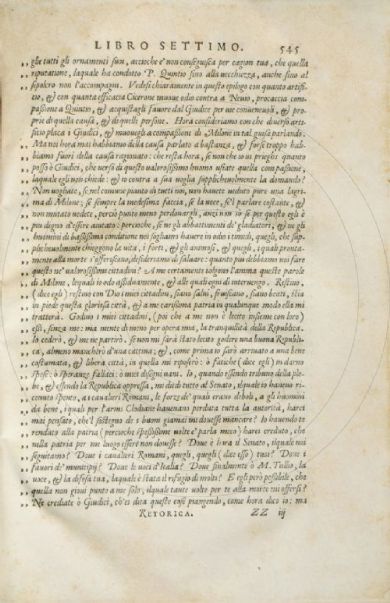 LIBRO SETTIMO. 545
„ glie tutti gli ornamenti suoi, accioche e' non conseguisca per cagion tua, che quella
„ riputatione, laquale ha condotto P. Quintio sino alla vecchiezza, anche sino al
„ sepolcro non l'accompagni. Vedesi chiaramente in questo epilogo con quanto artifi-
cio, & con quanta efficacia Cicerone muoue odio contra a Neuio, procaccia com-
passione a Quintio, & acquistagli fauore dal Giudice per vie conueneuoli, & pro-
prie di quella causa, & di quelle persone. Hora consideriamo con che diuerso arti-
ficio placa i Giudici, & muouegli a compassione di Milone in tal guisa parlando.
„ Ma noi hora mai habbiamo della causa parlato a bastanza, & forse troppo hab-
„ biamo fuori della causa ragionato: che resta hora, se non che io vi prieghi quanto
„ posso ò Giudici, che verso di questo valorosissimo huomo usiate quella compassione,
„ laquale egli non chiede: & io contra a sua voglia supplicheuolmente la domando?
„ Non vogliate, se nel commune pianto di tutti noi, non hauete veduto pure una lagri-
„ ma di Milone, se sempre la medesima faccia, se la voce, se'l parlare costante, &
„ non mutato vedete, perciò punto meno perdonargli, anzi non so se per questo egli è
„ piu degno d'essere aiutato: percioche, se ne gli abbattimenti de' gladiatori, & ne gli
„ huomini di bassissima conditione noi sogliamo hauere in odio i timidi, & quegli, che sup-
„ plicheuolmente chieggono la vita, i forti, & gli animosi, & quegli, i quali prontamente
„ alla morte s'offeriscono, desideriamo di saluare: quanto piu debbiamo noi fare
„ questo ne' valorosissimi cittadini? A me certamente tolgono l'anima queste parole
„ di Milone, lequali io odo assiduamente, & alle quali ogni dì interuengo. Restino
„ (dice egli) restino con Dio i miei cittadini, siano salui, fioriscano, siano beati, stia
„ in piede questa gloriosa città, & a me carissima patria in qualunque modo ella mi
„ tratterà. Godino i miei cittadini, (poi che a me non è lecito insieme con loro)
„ essi, senza me: ma mente di meno per opera mia, la tranquilità della Republica.
„ Io cederò, & me ne partirò. se non mi sarà stato lecito godere una buona Republi-
„ ca, almeno mancherò d'una cattiua; &, come prima io sarò arriuato a una bene
„ costumata, & libera città, in quella mi riposerò: ò fatiche (dice egli) in darno
„ spese: ò speranze fallaci: ò miei disegni vani. Io, quando essendo tribuno della ple-
„ be, & essendo la Republica oppressa, mi diedi tutto al Senato, ilquale io haueuo ri-
„ ceuuto spento, a i caualieri Romani, le forze de' quali erano deboli, a gli huomini
„ da bene, i quali per l'armi Clodiane haueuano perduta tutta la autorità, harei
„ mai pensato, che'l sostegno de i buoni giamai mi douesse mancare? Io hauendo te
„ renduto alla patria (percioche spessissime volte e' parla meco) harei creduto, che
„ nella patria per me luogo essere non douesse? Doue è hora il Senato, ilquale noi
„ seguitiamo? Doue i caualieri Romani, quegli, quegli (dice esso) tuoi? Doue i
„ fauori de' municipij? Doue le voci d'Italia? Doue finalmente ò M. Tullio, la
„ voce, & la difesa tua, laquale è stata il rifugio di molti? E egli però possibile, che
„ quella non gioui punto a me solo, ilquale tante volte per te alla morte mi offersi?
„ Ne crediate ò Giudici, ch'ei dica queste cose piangendo, come hora dico io: ma
RETORICA. ZZ iij